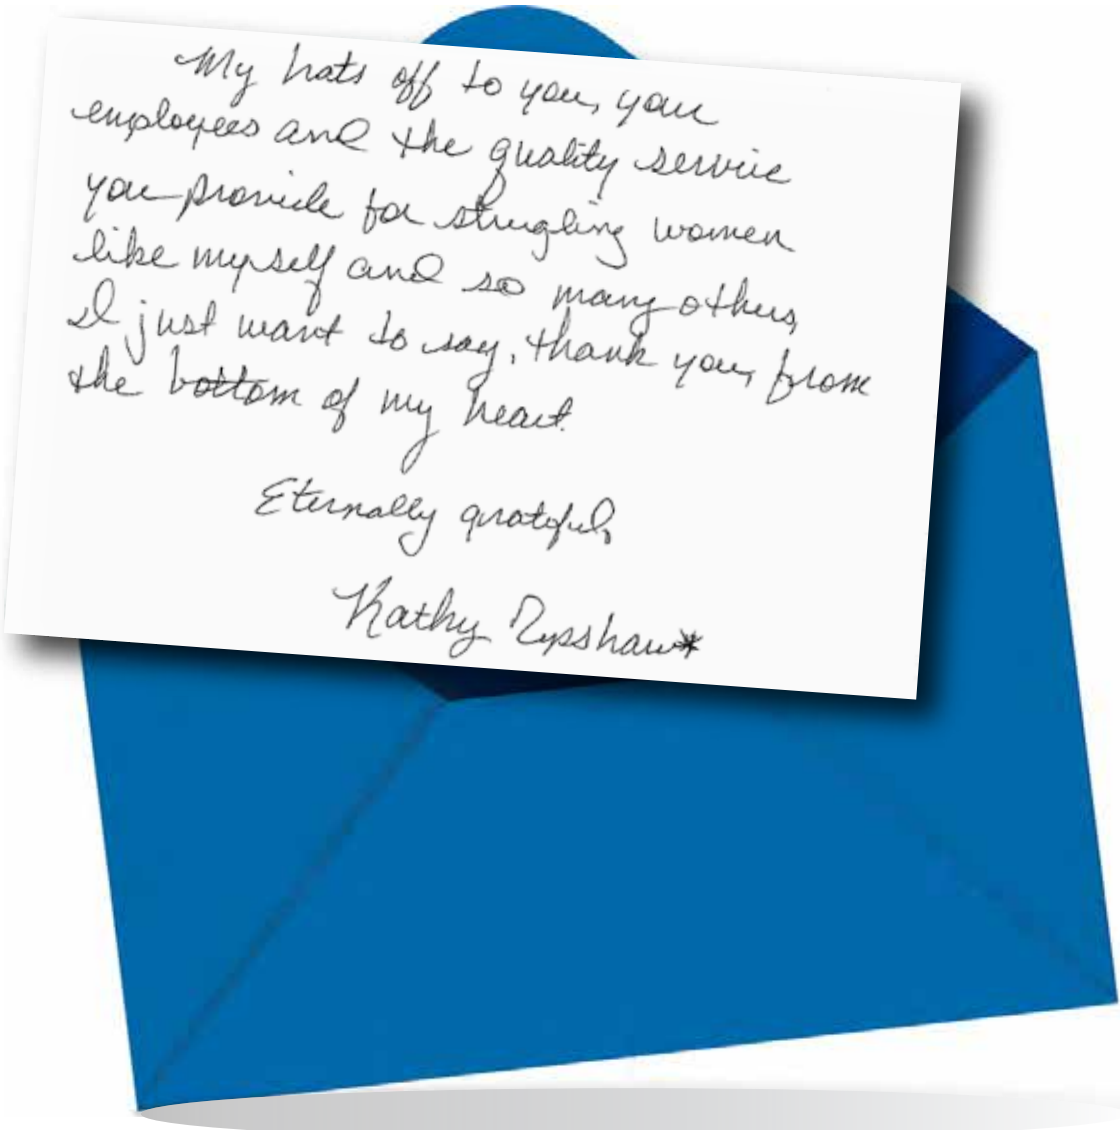 My hats off to you, your
employees and the quality service
you provide for strugling women
like myself and so many others,
I just want to say, thank you, from
the bottom of my heart.
Eternally grateful,
Kathy